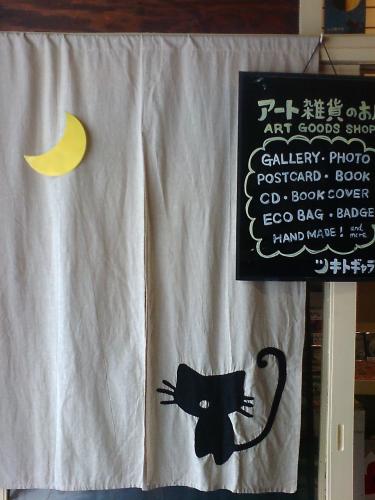 アート雑貨のお
ART GOODS SHOP
GALLERY・PHOTO
POSTCARD・BOOK
CD・BOOK COVER
ECO BAG・BADGE
HAND MADE! and more
ツキトギャラ